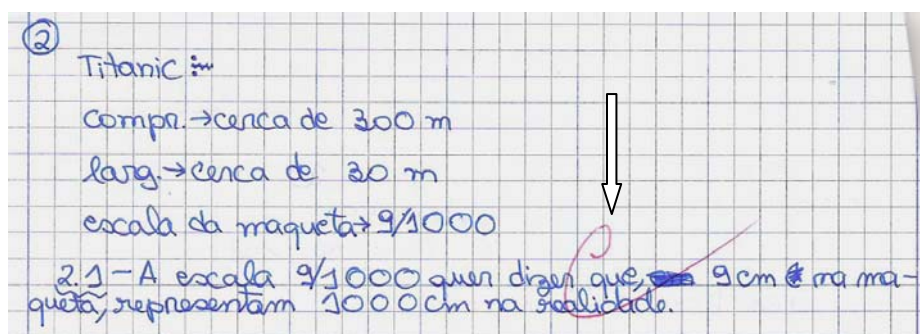 ②
Titanic:
compr.→cerca de 300 m
larg.→cerca de 30 m
escala da maqueta→9/1000
2.1-A escala 9/1000 quer dizer que, 9cm na ma-
queta, representam 1000cm na realidade.